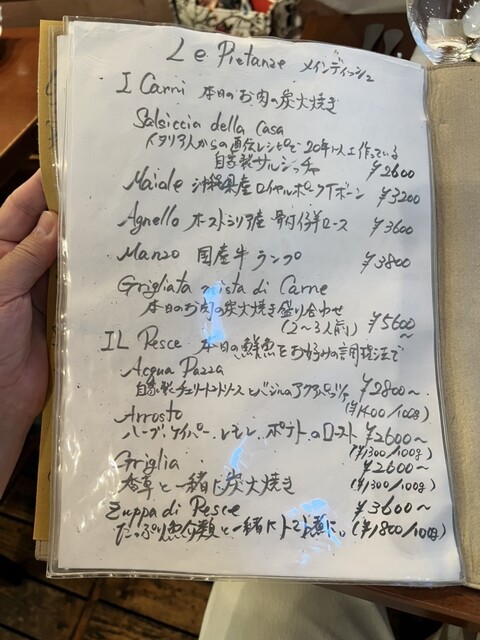 Le Pietanze メインディッシュ
I Carni 本日のお肉の炭火焼き
Salsiccia della Casa
イタリア人からの直伝レシピで20年以上作っている
自家製サルシッチャ ¥2600
Maiale 沖縄県産ロイヤルポークTボーン ¥3200
Agnello オーストラリア産 骨付仔羊ロース ¥3600
Manzo 国産牛ランプ ¥3800
Grigliata mista di Carne
本日のお肉の炭火焼き盛り合わせ
(2~3人前) ¥5600~
IL Pesce 本日の鮮魚をお好みの調理法で
Acqua Pazza
自家製チェリートマトソースとバジルのアクアパッツァ ¥2800~
(¥1400/100g)
Arrosto
ハーブ、ケイパー、レモン、ポテトのロースト ¥2600~
(¥1300/100g)
Griglia ¥2600~
香草と一緒に炭火焼き (¥1300/100g)
Zuppa di Pesce ¥3600~
たっぷり魚介類と一緒にトマト煮に。(¥1800/100g)